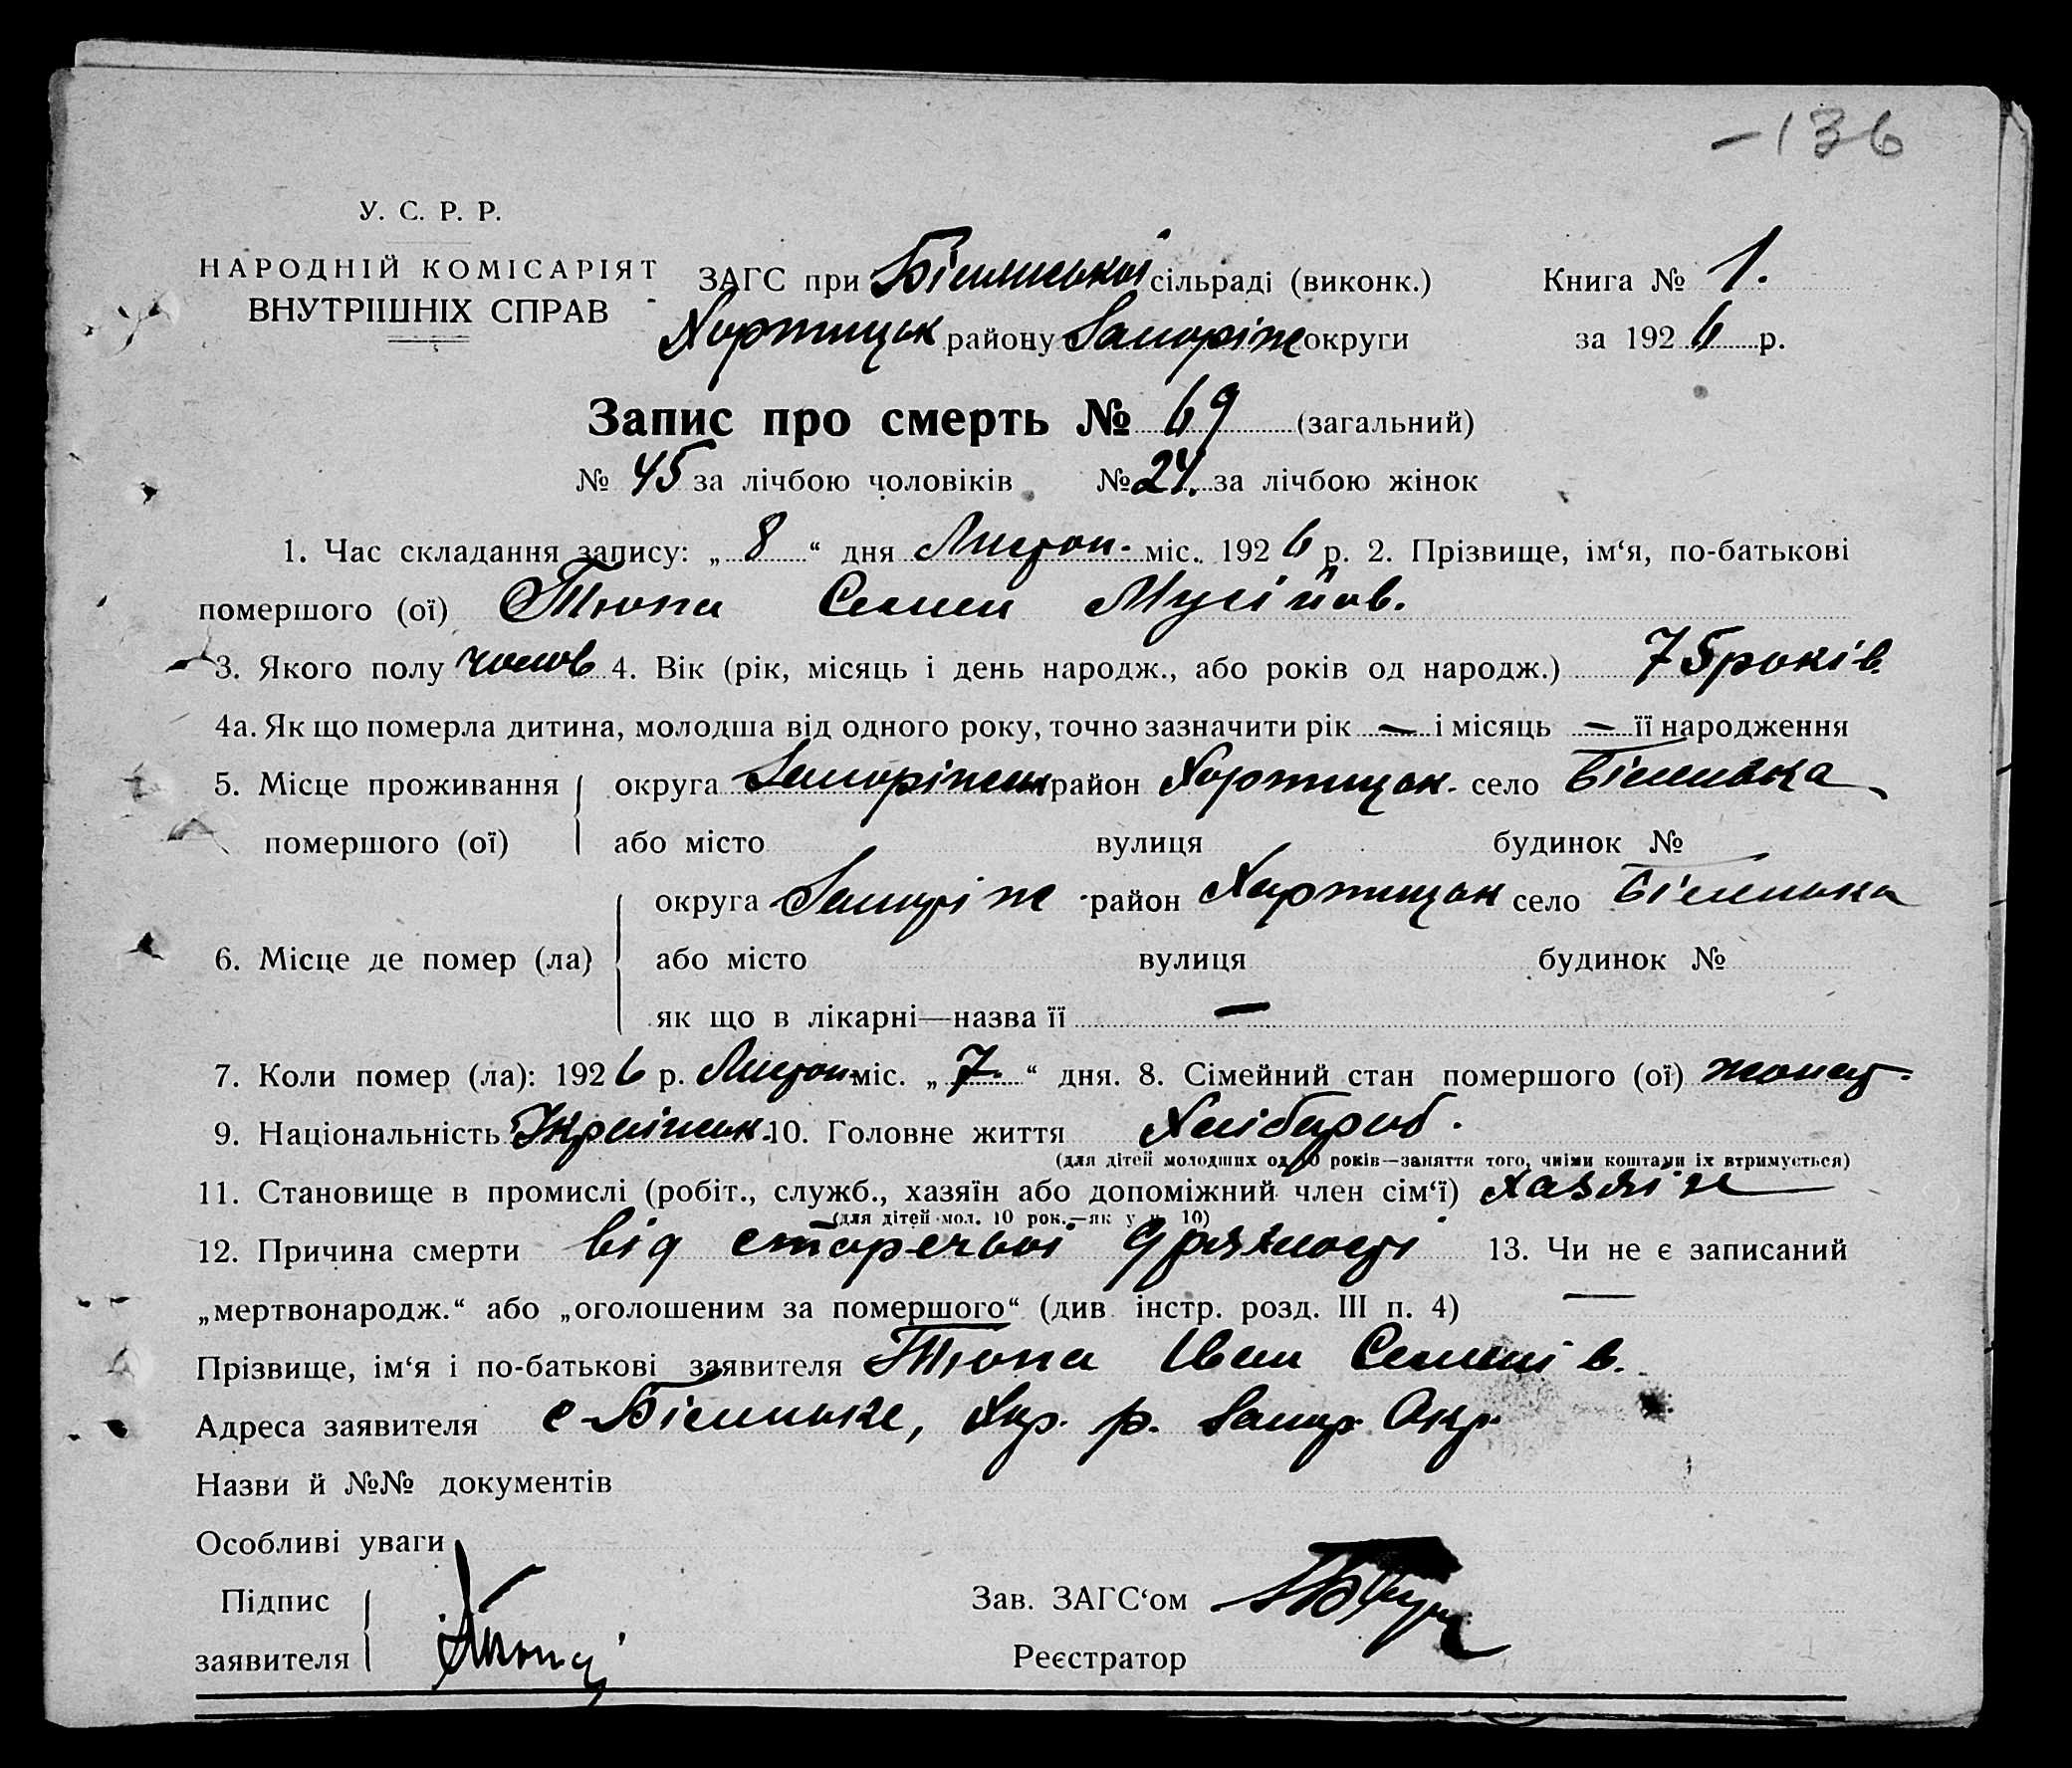 -136
У. С. Р. Р.
НАРОДНІЙ КОМІСАРІЯТ
ВНУТРІШНІХ СПРАВ
ЗАГС при Біленської сільраді (виконк.)
Книга № 1.
Хортицьк району Запоріж округи
за 1926 р.
Запис про смерть № 69 (загальний)
№ 45 за лічбою чоловіків № 24. за лічбою жінок
1. Час складання запису: „ 8 “ дня Листоп. міс. 1926 р. 2. Прізвище, ім‘я, по-батькові
помершого (ої) Тюпа Семен Мусійов.
3. Якого полу чолов 4. Вік (рік, місяць і день народж., або років од народж.) 75 років
4а. Як що померла дитина, молодша від одного року, точно зазначити рік — і місяць — її народження
5. Місце проживання помершого (ої)
округа Запоріжськ район Хортицьк. село Біленька
або місто вулиця будинок №
6. Місце де помер (ла)
округа Запоріж район Хортицьк село Біленька
або місто вулиця будинок №
як що в лікарні—назва її —
7. Коли помер (ла): 1926 р. Листоп. міс. „ 7. “ дня. 8. Сімейний стан помершого (ої) жонат.
9. Національність Українськ. 10. Головне життя Хлібороб.
(для дітей молодших од 10 років—заняття того, чиїми коштами їх втримується)
11. Становище в промислі (робіт., служб., хазяїн або допоміжний член сім‘ї) хазяїн
(для дітей мол. 10 рок.—як у п. 10)
12. Причина смерти від старечьої дряхлості 13. Чи не є записаний
„мертвонародж.“ або „оголошеним за помершого“ (див. інстр. розд. III п. 4) —
Прізвище, ім‘я і по-батькові заявителя Тюпа Іван Семенів.
Адреса заявителя с Біленьке, Хор. р. Запор. Окр.
Назви й №№ документів
Особливі уваги
Підпис заявителя
Зав. ЗАГС‘ом
Реєстратор